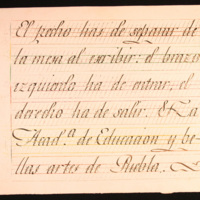 El pecho has de separar de
la mesa al escribir: el brazo
izquierdo ha de entrar, el
derecho ha de salir. &La
Acad.ª de Educacion y be-
llas artes de Puebla.